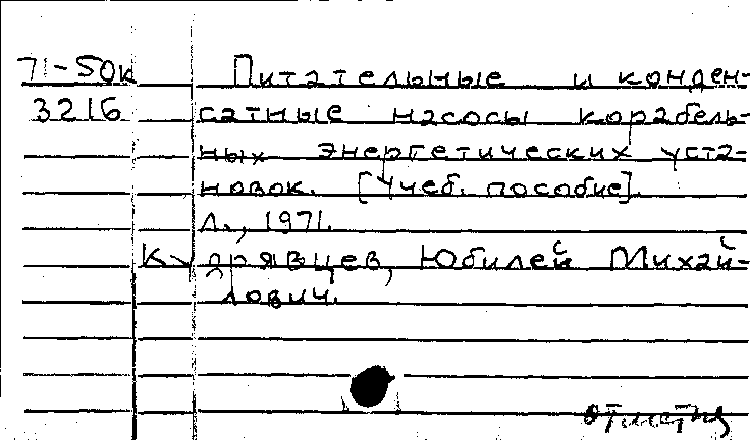 71-50к Питательные и конден-
3216 сатные насосы корабель-
ных энергетических уста-
новок. [Учеб. пособие].
Л., 1971.
Кудрявцев, Юбилей Михай-
лович.